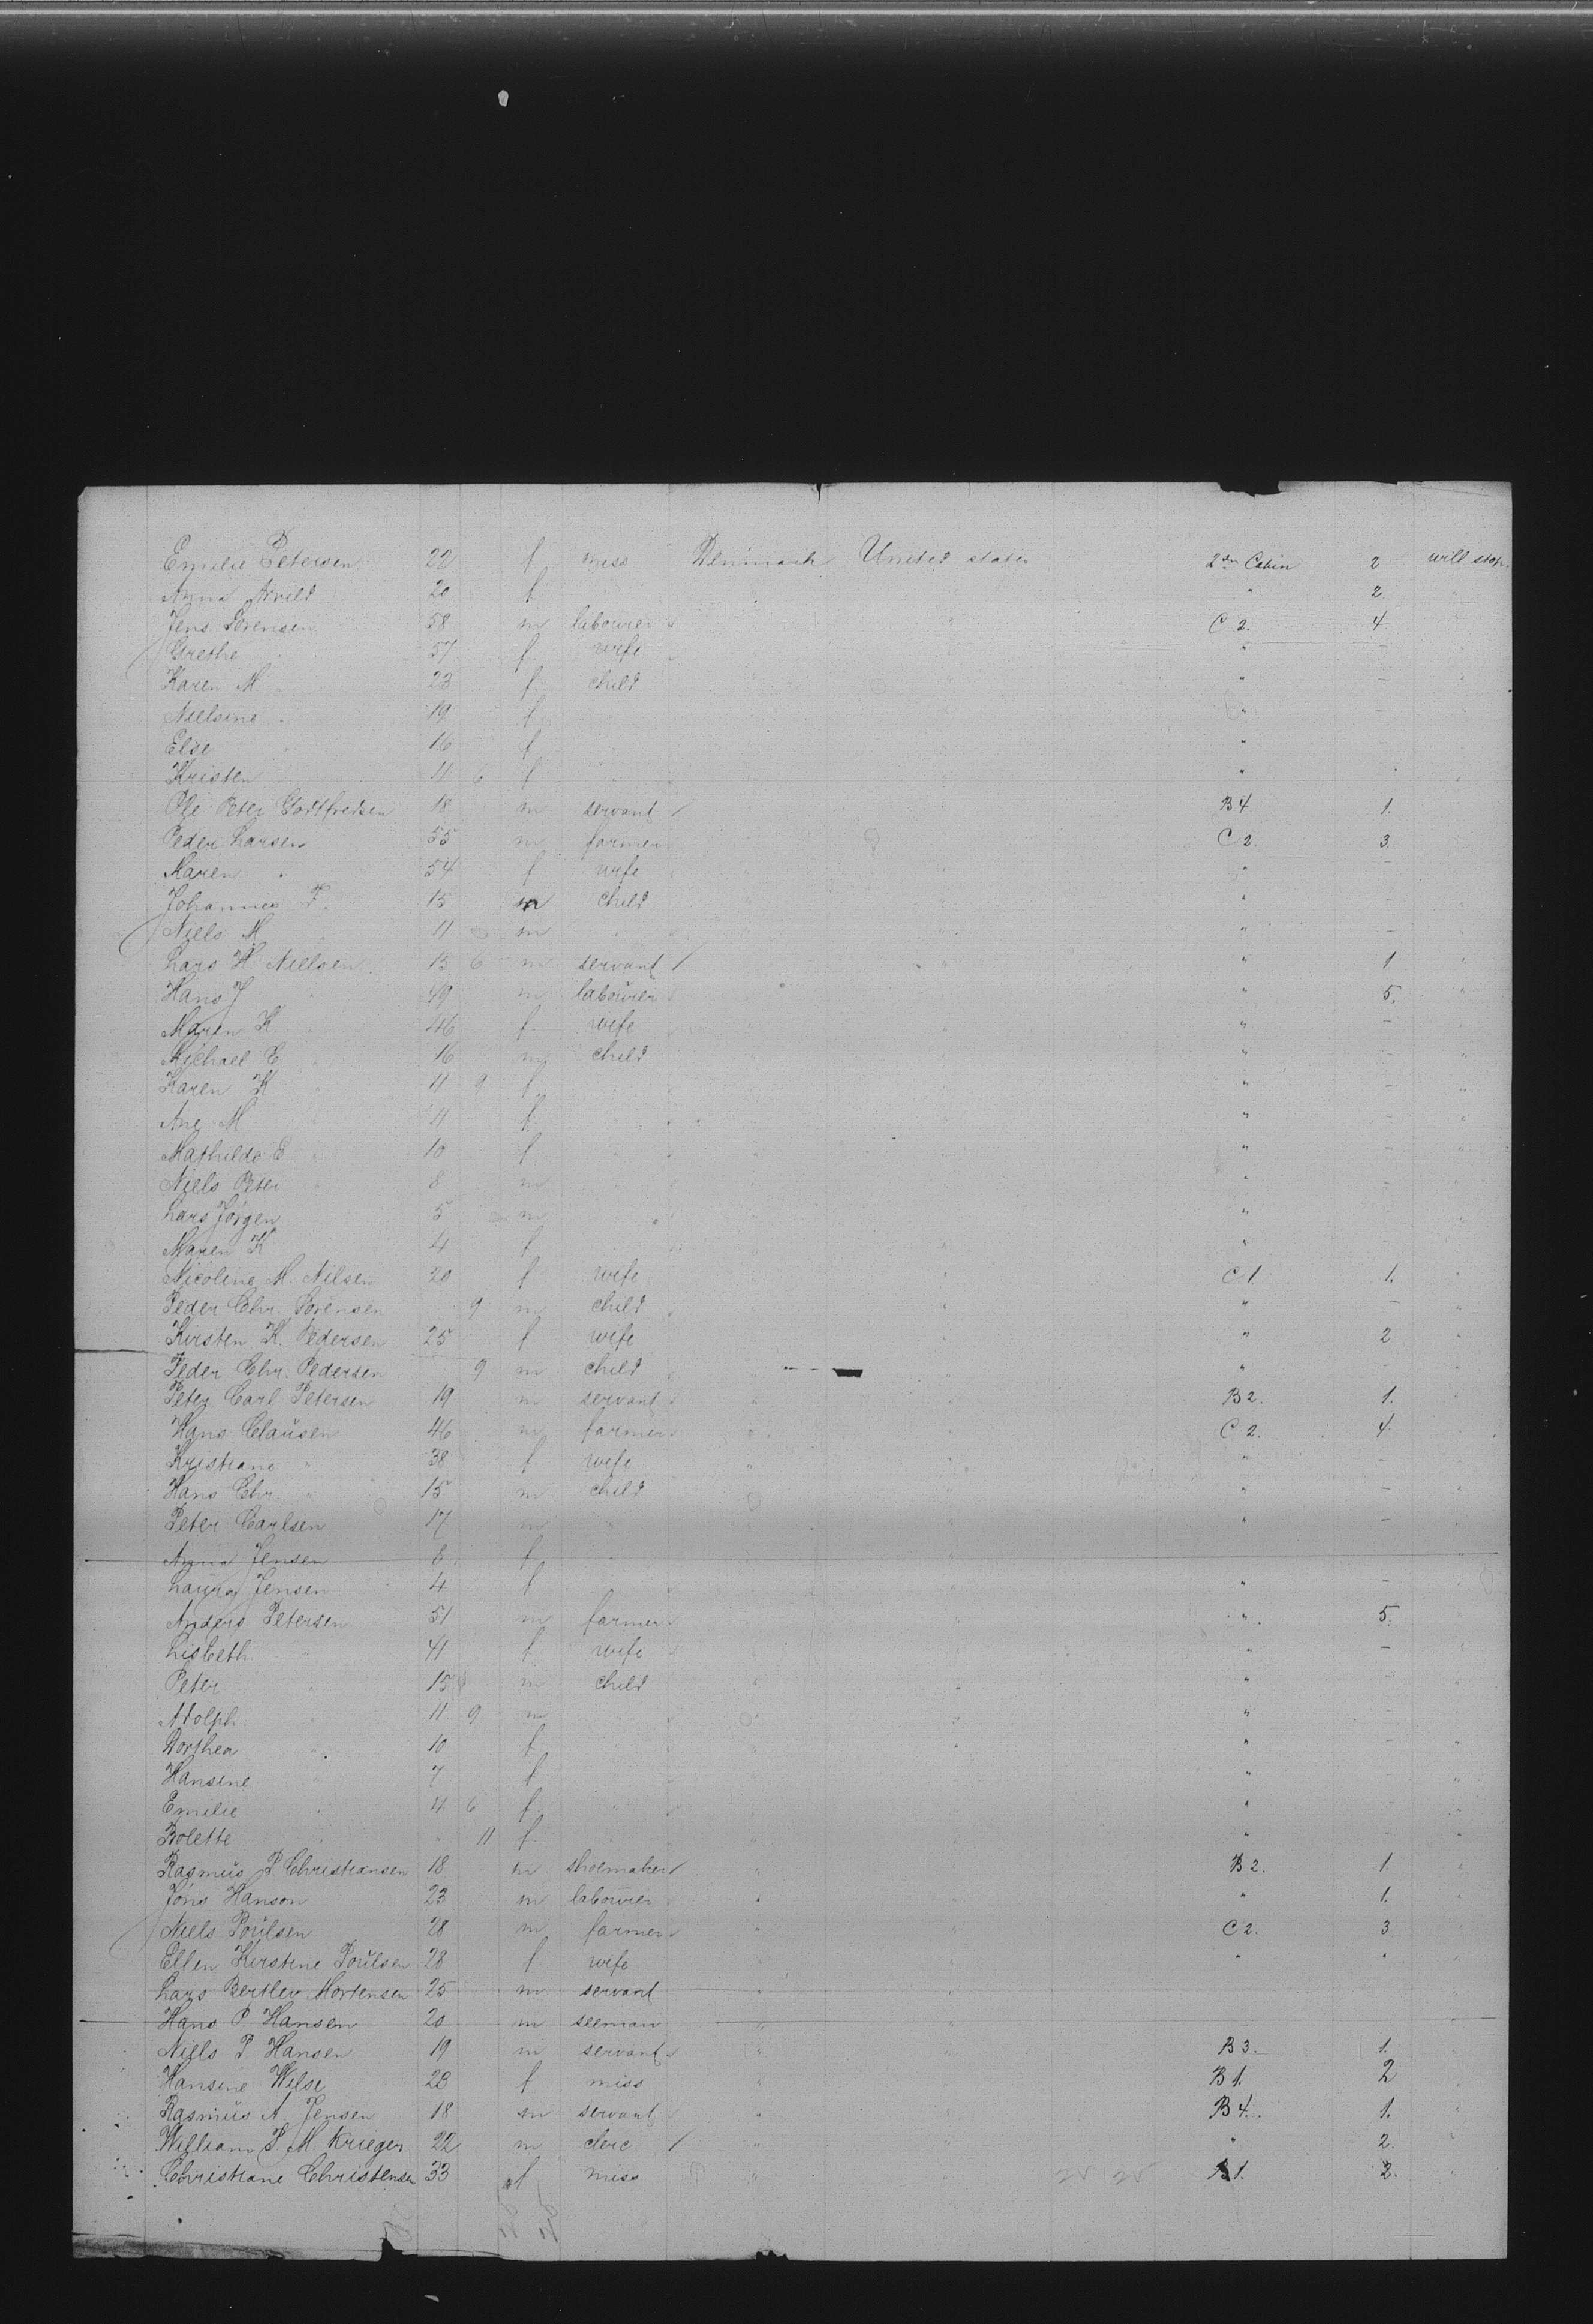 Emilie Petersen 22 f miss Denmark United states 2den Cabin 2 will stop.
Anna Arvild 20 f " 2
Jens Sörensen 58 m labourer C 2. 4
Grethe " 57 f wife " -
Karen M " 23 f child " -
Nielsine " 19 f " -
Else " 16 f "
Kristen 11 6 f "
Ole Peter Gottfredsen 18 m servant B 4 1.
Peder Larsen 55 m farmer C 2. 3.
Maren " 54 f wife " -
Johannes P. 15 m child " -
Niels M 11 m " -
Lars H Nielsen 15 6 m servant " 1
Hans J " 49 m labourer " 5.
Maren K 46 f wife " -
Michael E 16 m child " -
Karen K 11 9 f " -
Ane M 11 f " -
Mathilde E 10 f " -
Niels Peter 8 m " -
Lars Jörgen 5 m " -
Maren K 4 f " -
Nicoline M. Nilsen 20 f wife C 1 1.
Peder Chr. Sörensen 9 m child " -
Kirsten K. Pedersen 25 f wife " 2
Peder Chr. Pedersen 9 m child " -
Peter Carl Petersen 19 m servant B 2. 1.
Hans Clausen 46 m farmer C 2. 4.
Kristiane " 38 f wife " -
Hans Chr. " 15 m child " -
Peter Carlsen 17 m " -
Anna Jensen 8 f
Laura Jensen 4 f " -
Anders Petersen 51 m farmer " 5.
Lisbeth 41 f wife " -
Peter " 15 m child " -
Adolph 11 9 m " -
Dorthea 10 f " -
Hansine 7 f " -
Emilie 4 6 f " -
Bolette " 11 f " -
Rasmus P Christiansen 18 m shoemaker B 2. 1.
Jöns Hanson 23 m labourer " 1.
Niels Poulsen 28 m farmer C 2. 3
Ellen Kirstine Poulsen 28 f wife " "
Lars Bertlev Mortensen 25 m servant
Hans P. Hansen 20 m seeman
Niels P Hansen 19 m servant B 3. 1.
Hansine Wilse 23 f miss B 1. 2
Rasmus A Jensen 18 m servant B 4. 1.
William S. M. Krieger 22 m clerc " 2.
Christiane Christensen 33 f miss B 1. 2.